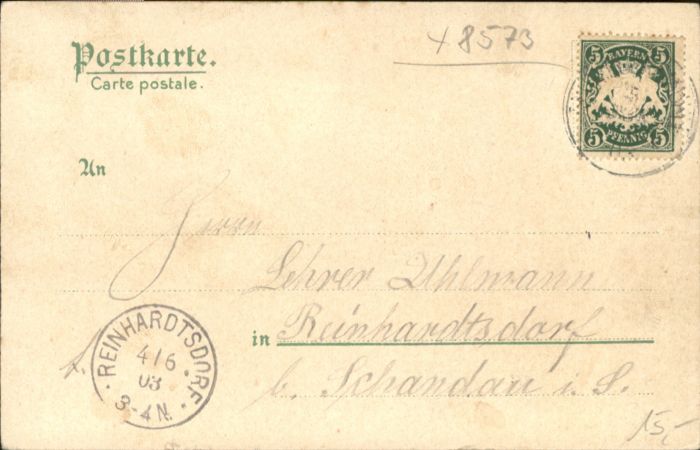 Postkarte.
Carte postale.
48573
5 BAYERN 5
5 PFENNIG 5
An
Herrn
Lehrer Uhlmann
in Reinhardtsdorf
b. Schandau i. S.
REINHARDTSDORF.
4/6
03
3-4N.
15,-